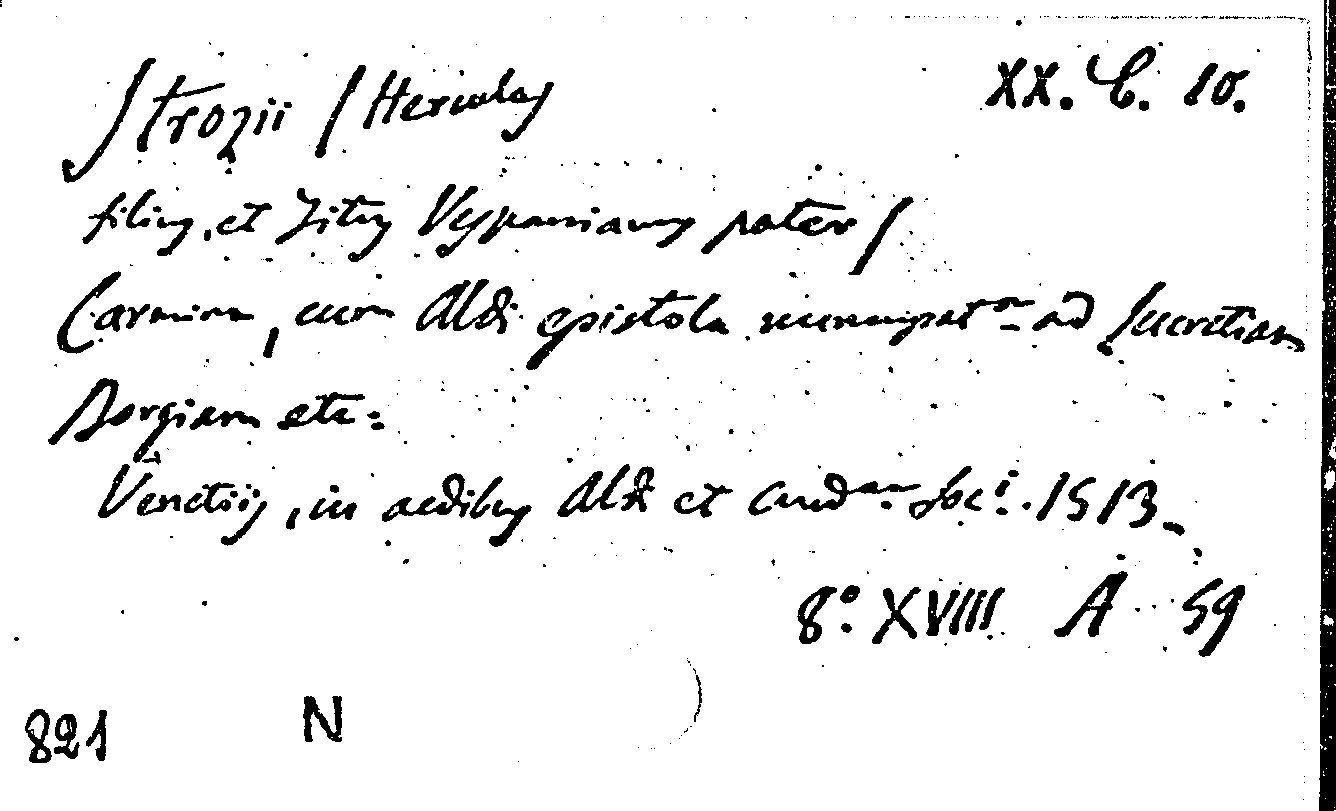 Strozii /Hercules XX. C. 10.
filius, et Titus Vespasianus pater/
Carmina, cum Aldi epistola nuncupator. ad Lucretiam
Borgiam etc:
Venetiis, in aedibus Aldi et Andr. Soci. 1513.
8º XVIII A 59
821 N